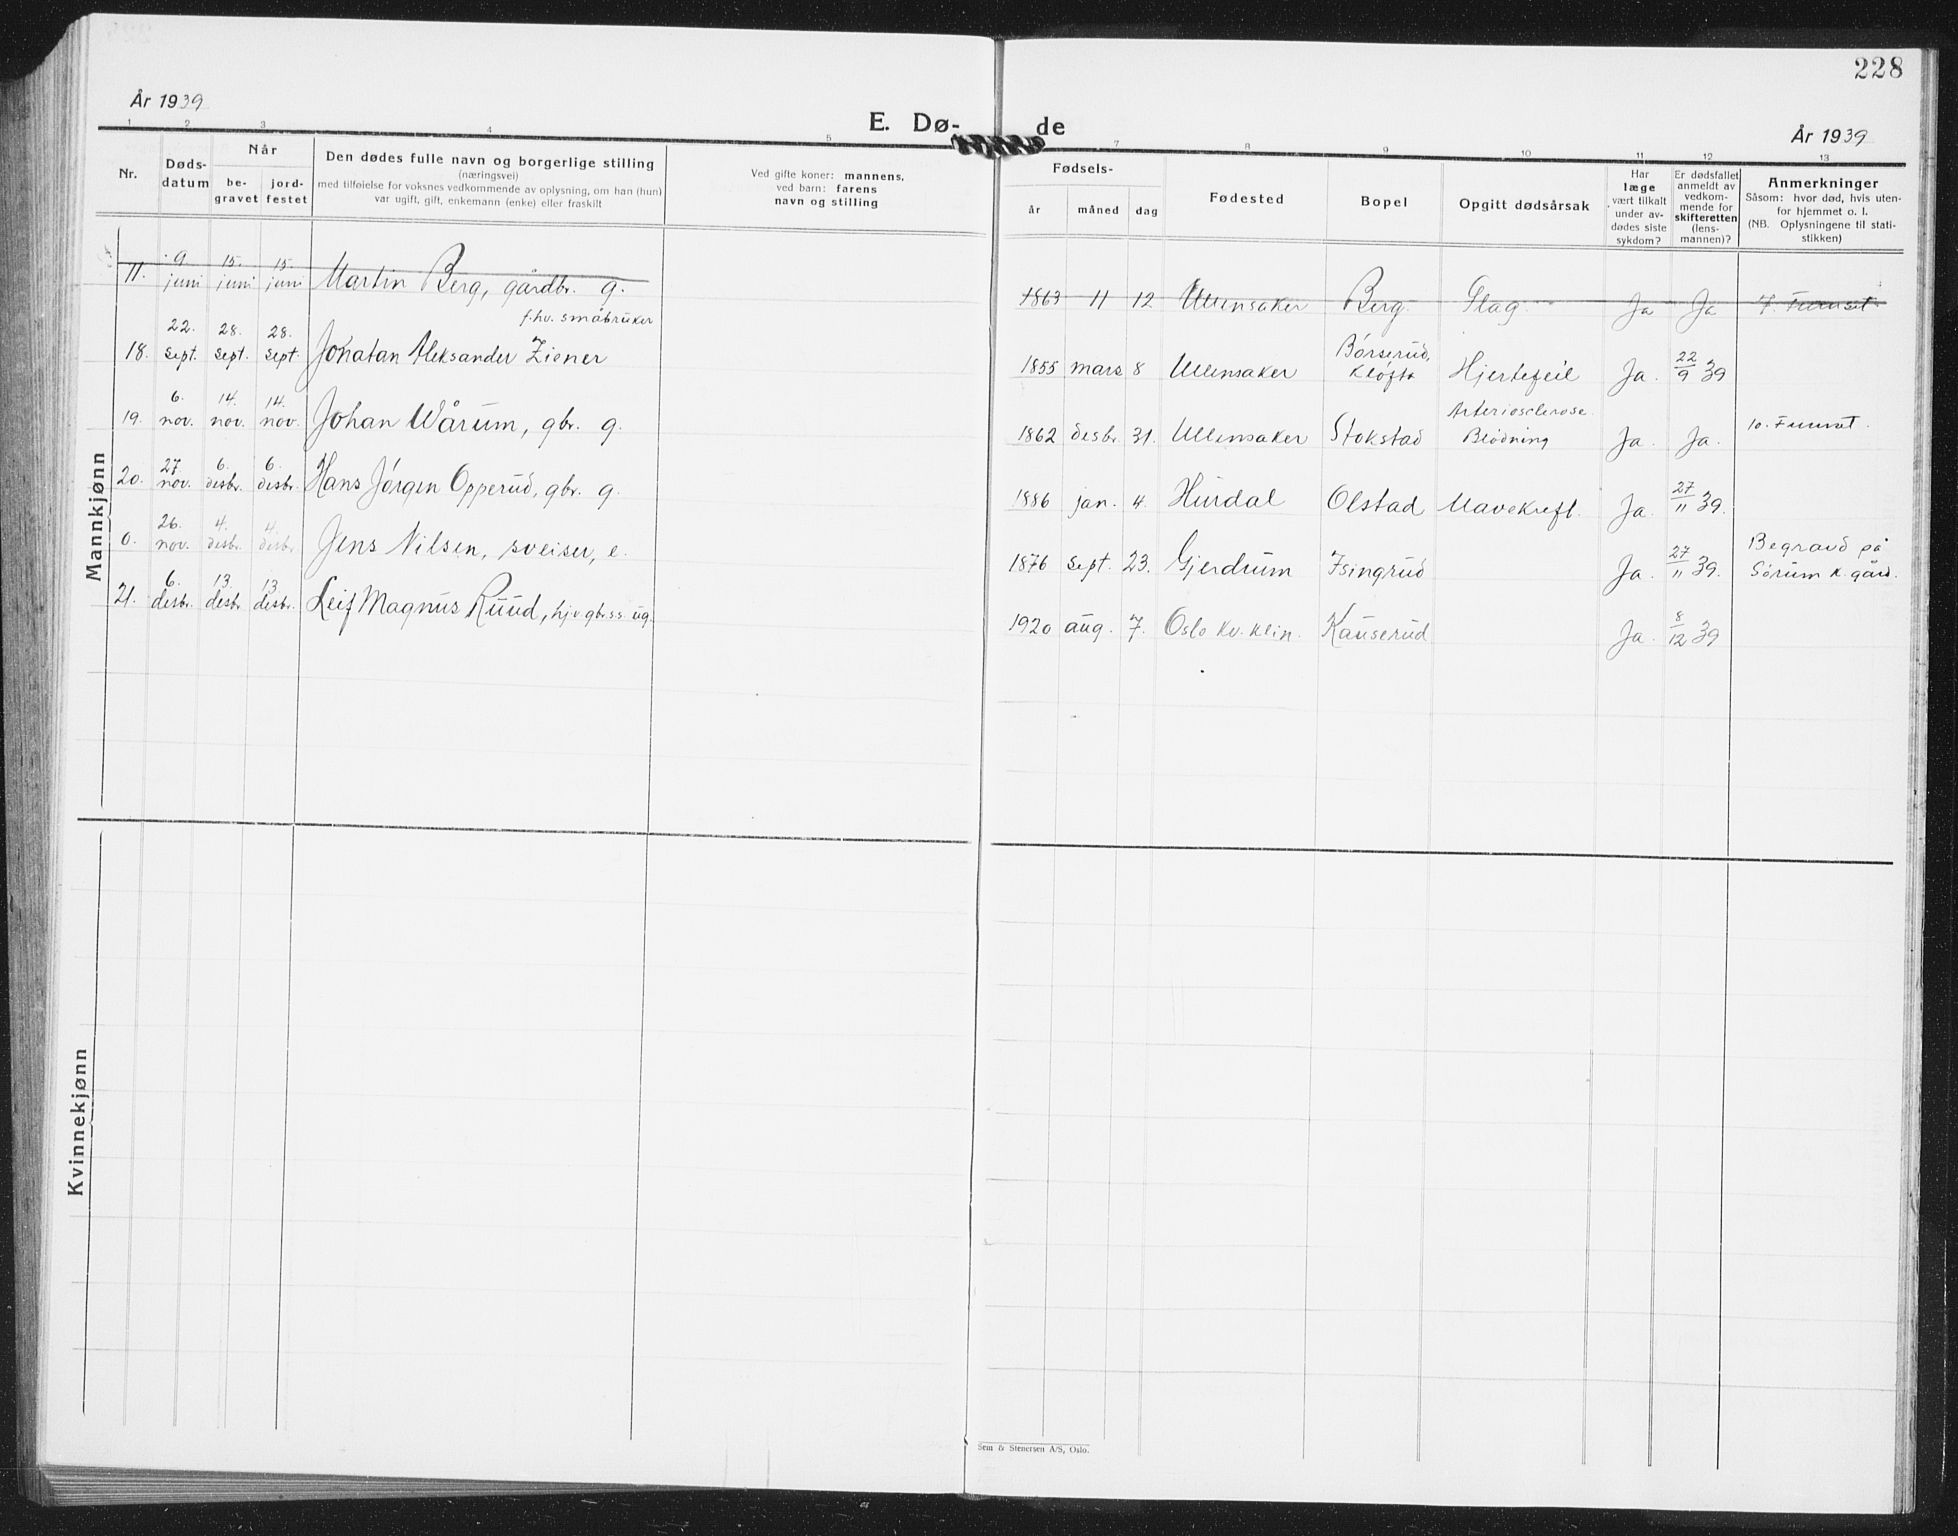 228
År 1939
E. Dø-
de
År 1939
1 2 3 4 5 7 8 9 10 11 12 13
Nr.
Døds-
datum
Når
be-
gravet
jord-
festet
Den dødes fulle navn og borgerlige stilling
(næringsvei)
med tilføielse for voksnes vedkommende av oplysning, om han (hun)
var ugift, gift, enkemann (enke) eller fraskilt
Ved gifte koner: mannens,
ved barn: farens
navn og stilling
Fødsels-
år måned dag
Fødested
Bopel
Opgitt dødsårsak
Har
læge
vært tilkalt
under av-
dødes siste
sykdom?
Er dødsfallet
anmeldt av
vedkom-
mende for
skifteretten
(lens-
mannen)?
Anmerkninger
Såsom: hvor død, hvis uten-
for hjemmet o. l.
(NB. Oplysningene til stati-
stikken)
Mannkjønn
11. 9 juni 15. juni 15. juni Martin Berg, gårdbr. g. 1863 11 12 Ullensaker Berg Slag Ja Ja 7. Furuset
f.hv. småbruker
18. 22. sept. 28. sept. 28. sept. Jonatan Aleksander Ziener 1855 mars 8 Ullensaker Børserud, Kløfta Hjertefeil Ja. 22/9 39
19. 6. nov. 14. nov. 14. nov. Johan Wårum, gbr. g. 1862 desbr. 31. Ullensaker Stokstad Arteriosclerose. Blødning Ja. Ja. 10. Furuset.
20. 27. nov. 6. desbr. 6. desbr. Hans Jørgen Opperud, gbr. g. 1886 jan. 4. Hurdal Olstad Mavekreft. Ja. 27/11 39.
0. 26. nov. 4. desbr. 4. desbr. Jens Nilsen, sveiser, e. 1876 sept. 23. Gjerdrum Isingrud Ja. 27/11 39. Begravd på Sørum k.gård.
21. 6. desbr. 13. desbr. 13 desbr. Leif Magnus Ruud, hjv. gbr.s.s. ug. 1920 aug. 7. Oslo kv. klin. Kauserud Ja. 8/12 39
Kvinnekjønn
Sem & Stenersen A/S, Oslo.